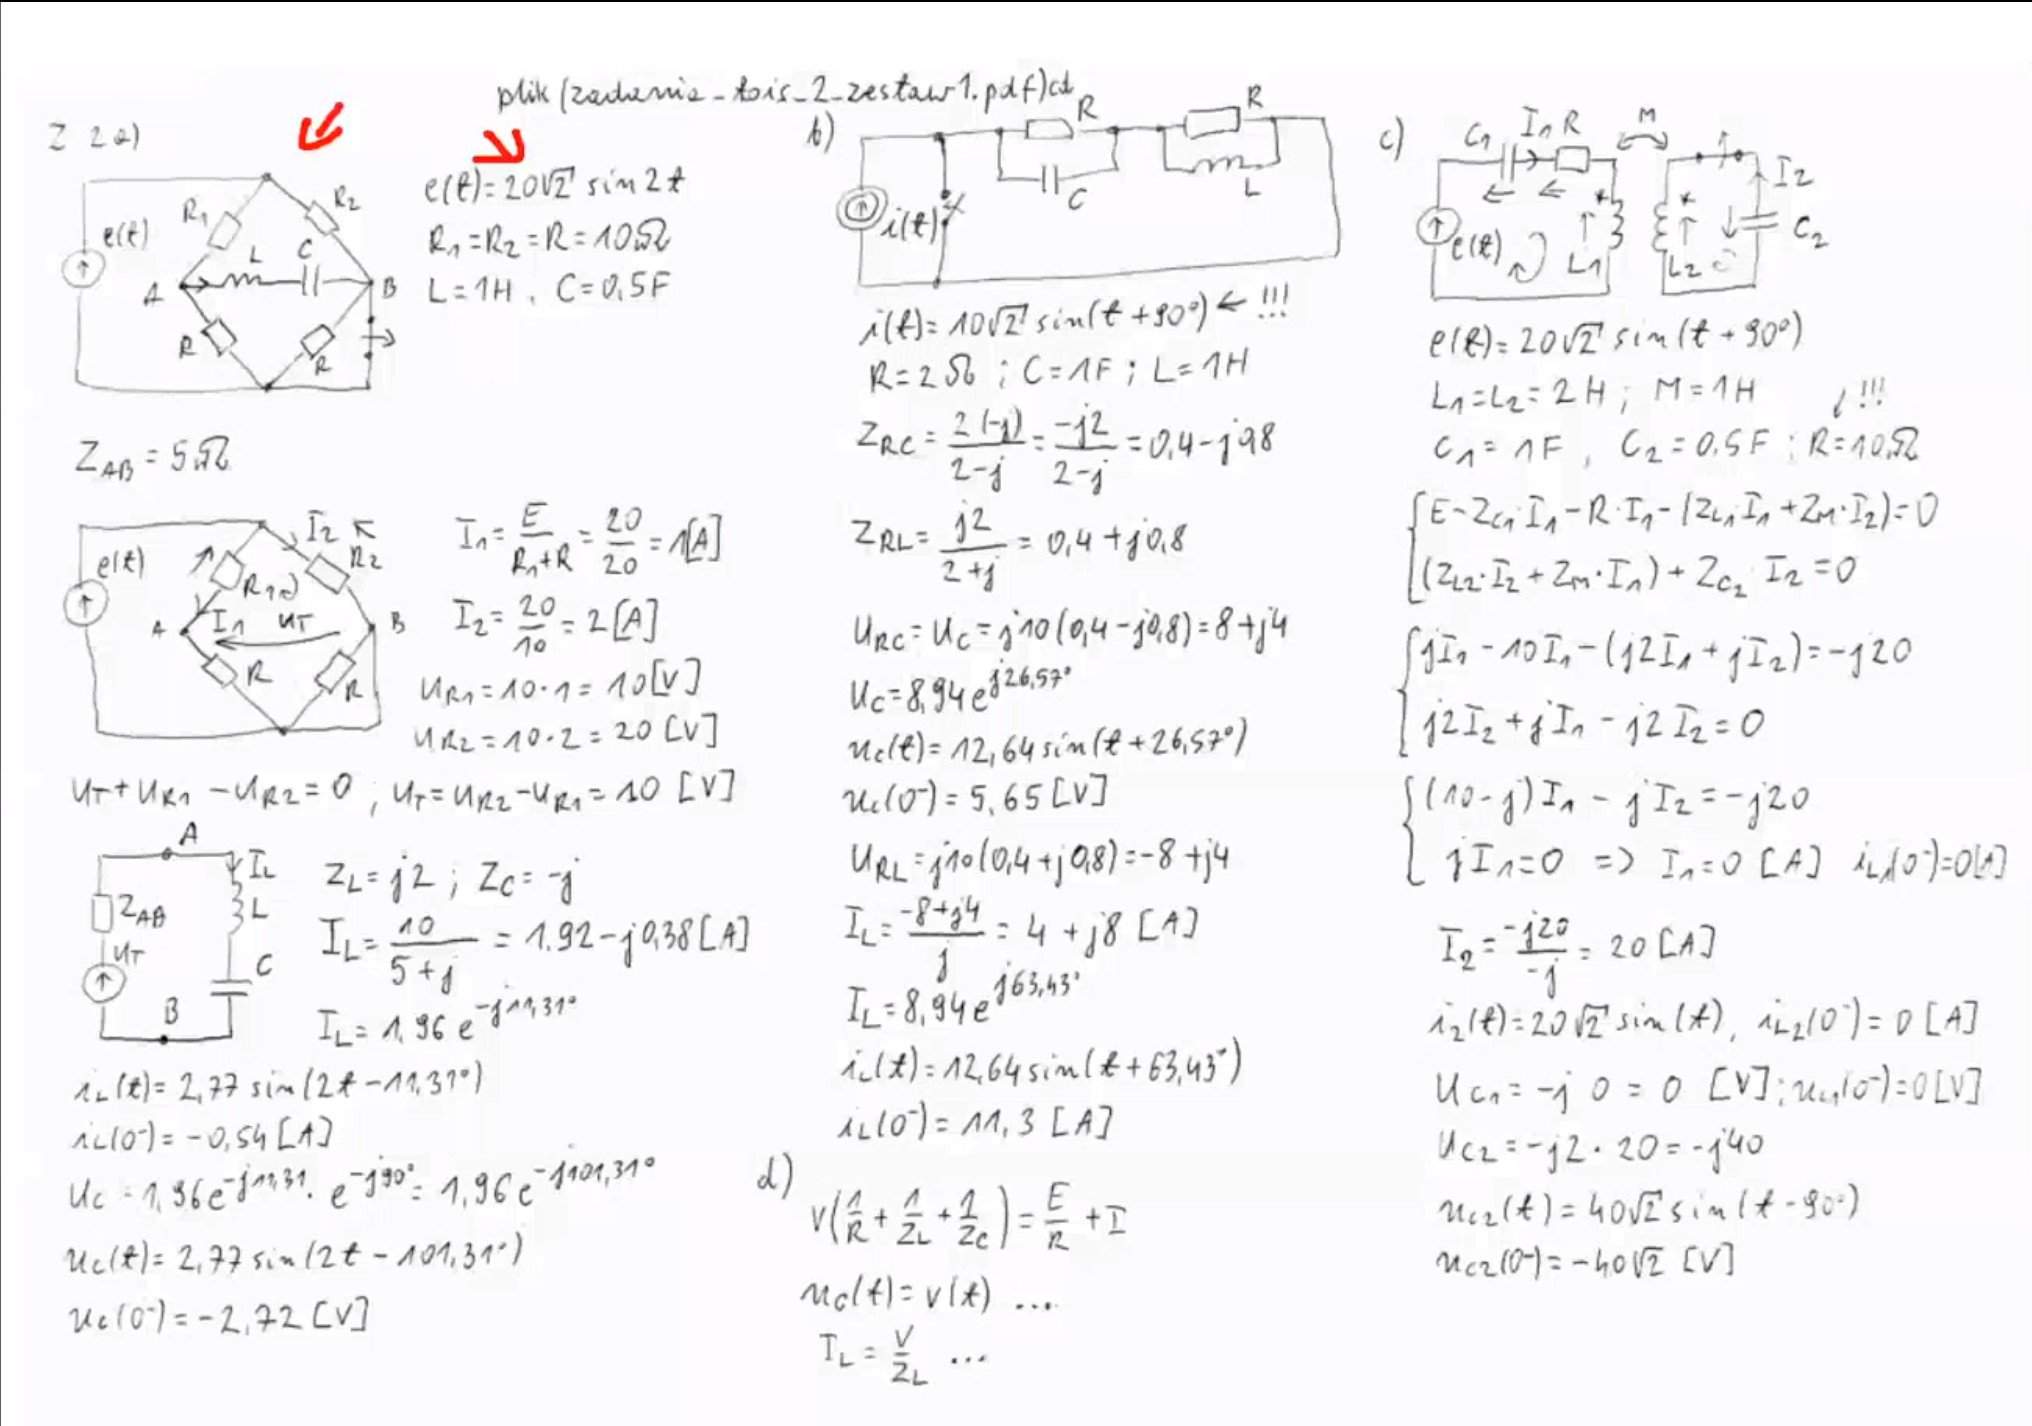 plik (zadania_tois_2_zestaw1.pdf) cd
Z 2a)
e(t)
R₁
R₂
L
C
A
B
R
R
e(t) = 20√2 sin 2t
R₁ = R₂ = R = 10Ω
L = 1H, C = 0,5F
Z_AB = 5Ω
e(t)
I₂
R₂
R₁
A
I₁
u_T
B
R
R
I₁ = E/(R₁+R) = 20/20 = 1[A]
I₂ = 20/10 = 2[A]
U_R1 = 10·1 = 10[V]
U_R2 = 10·2 = 20[V]
U_T + U_R1 - U_R2 = 0 ; U_T = U_R2 - U_R1 = 10 [V]
A
Z_AB
I_L
L
U_T
C
B
Z_L = j2 ; Z_C = -j
I_L = 10/(5+j) = 1.92 - j0,38 [A]
I_L = 1,96 e^(-j11,31°)
i_L(t) = 2,77 sin(2t - 11,31°)
i_L(0⁻) = -0,54 [A]
U_C = 1,96e^(-j11,31) · e^(-j90°) = 1,96e^(-j101,31°)
u_C(t) = 2,77 sin(2t - 101,31°)
u_C(0⁻) = -2,72 [V]
b)
R
R
C
L
i(t)
i(t) = 10√2 sin(t + 90°) ← !!!
R = 2Ω ; C = 1F ; L = 1H
Z_RC = 2(-j)/(2-j) = -j2/(2-j) = 0,4 - j0,8
Z_RL = j2/(2+j) = 0,4 + j0,8
U_RC = U_C = j10(0,4 - j0,8) = 8 + j4
U_C = 8,94 e^(j26,57°)
u_C(t) = 12,64 sin(t + 26,57°)
u_C(0⁻) = 5,65 [V]
U_RL = j10(0,4 + j0,8) = -8 + j4
I_L = (-8+j4)/j = 4 + j8 [A]
I_L = 8,94 e^(j63,43°)
i_L(t) = 12,64 sin(t + 63,43°)
i_L(0⁻) = 11,3 [A]
d)
V(1/R + 1/Z_L + 1/Z_C) = E/R + I
u_C(t) = v(t) ...
I_L = V/Z_L ...
c)
C₁
I₁
R
M
*
*
I₂
C₂
e(t)
L₁
L₂
e(t) = 20√2 sin(t + 90°)
L₁ = L₂ = 2H ; M = 1H
↓ !!!
C₁ = 1F, C₂ = 0,5F ; R = 10Ω
{ E - Z_C1·I₁ - R·I₁ - (Z_L1·I₁ + Z_M·I₂) = 0
(Z_L2·I₂ + Z_M·I₁) + Z_C2 I₂ = 0
{ jI₁ - 10I₁ - (j2I₁ + jI₂) = -j20
j2I₂ + jI₁ - j2I₂ = 0
{ (10-j)I₁ - jI₂ = -j20
jI₁ = 0 => I₁ = 0 [A] i_L1(0⁻) = 0[A]
I₂ = -j20/-j = 20 [A]
i₂(t) = 20√2 sin(t), i_L2(0⁻) = 0 [A]
U_C1 = -j 0 = 0 [V] ; u_C1(0⁻) = 0[V]
U_C2 = -j2 · 20 = -j40
u_C2(t) = 40√2 sin(t - 90°)
u_C2(0⁻) = -40√2 [V]